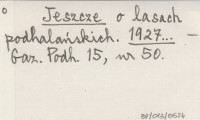 o
Jeszcze o lasach
podhalańskich. 1927... –
Gaz. Podh. 15, nr 50.